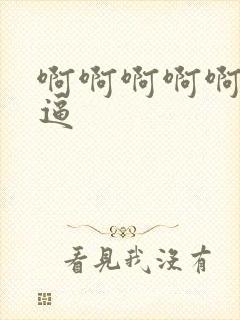 啊啊啊啊啊
逼
看見我沒有